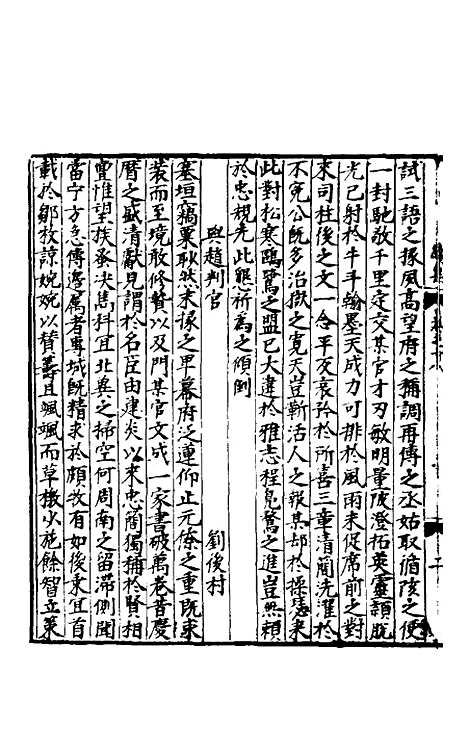 試三語之掾風高望府之稱調再傳之丞姑取循陔之便
一封馳敬千里定交某官才刃敏明量陂澄拓英靈穎脫
光已射於牛斗翰墨天成力可排於風雨未促席前之對
來司柱後之文一念平反哀矜於所喜三章清簡洗濯於
不冤公既多治獄之寬天豈靳活人之報某却於操
此對松寒鷗鷺之盟已大違於雅志程鳧鶩之進豈然賴
於忠規先此懇祈為之傾倒
與趙判官 劉後村
塞垣竊粟耿然末掾之卑幕府泛蓮仰止元僚之重既束
裝而至境敢修贄以及門某官文成一家書破萬卷昔慶
曆之盛清獻見謂於名臣由建炎以來忠簡獨稱於賢相
疊惟望族蚤決雋科宜北與之掃空何周南之留滯側聞
當宁方急傳邊屬者專城既精求於頗牧有如後乘宜首
載於鄒枚諒婉婉以贊籌且颯颯而草檄少施餘智立策